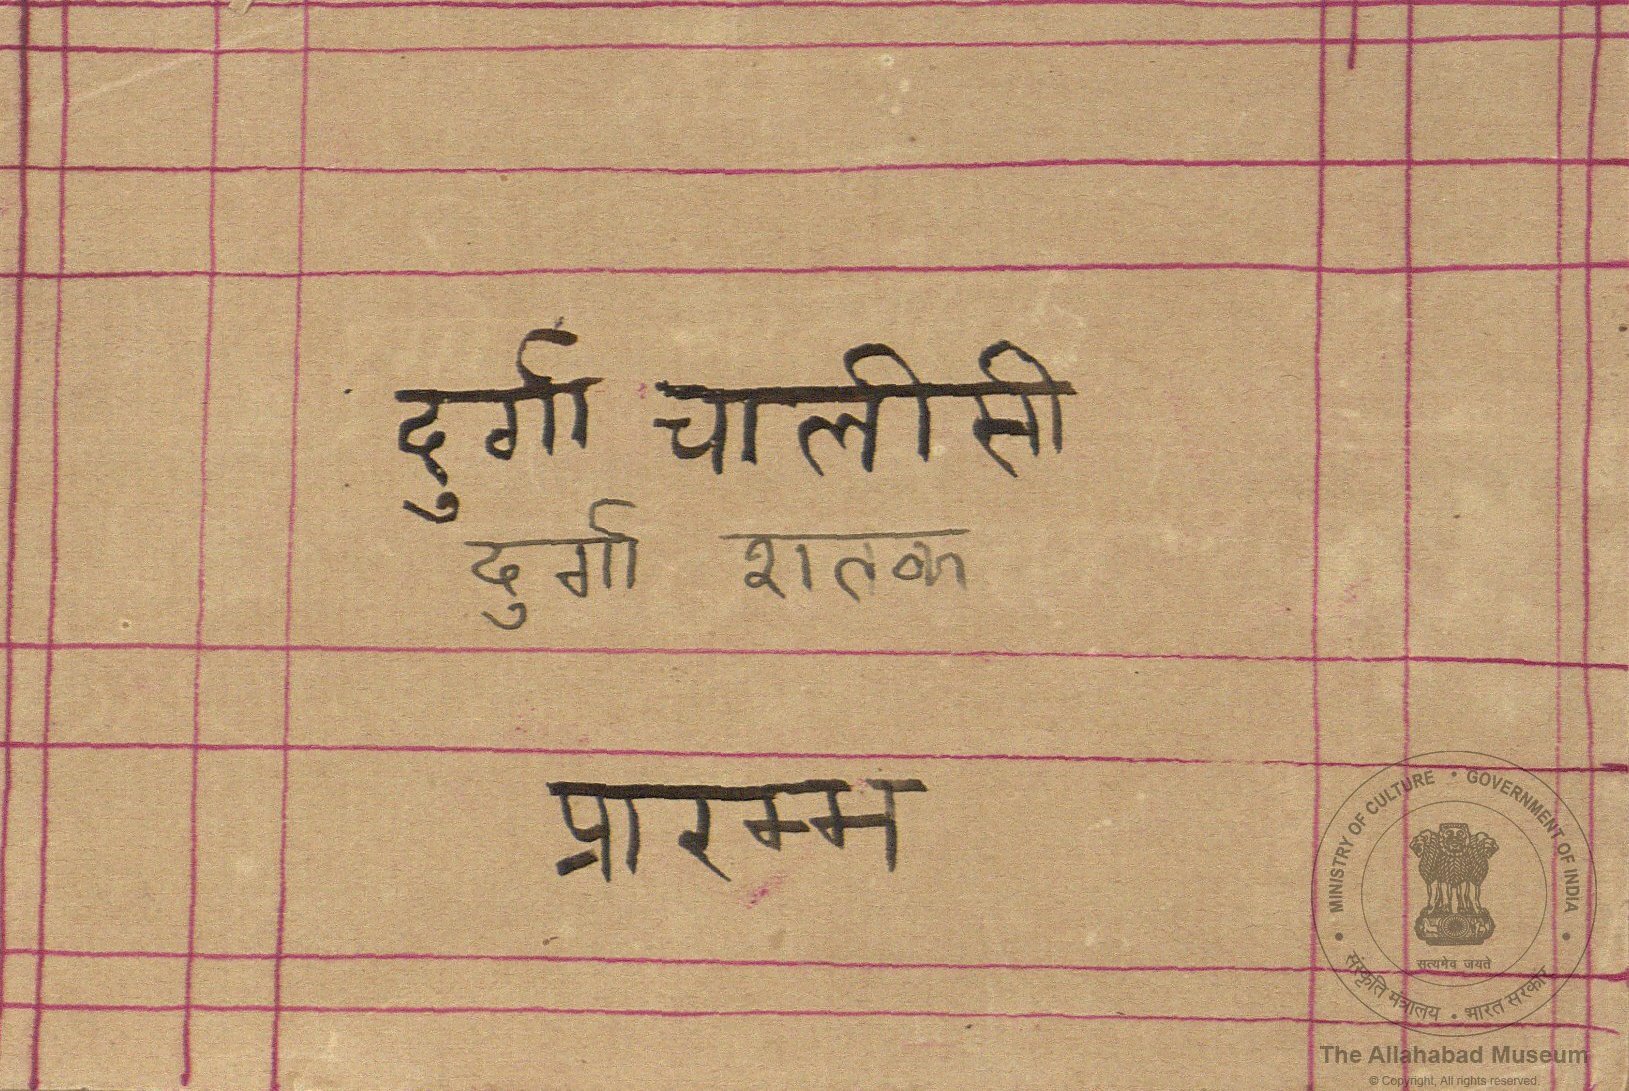 दुर्गा चालीसी
दुर्गा शतक
प्रारम्भ
MINISTRY OF CULTURE • GOVERNMENT OF INDIA
सत्यमेव जयते
संस्कृति मंत्रालय • भारत सरकार
The Allahabad Museum
© Copyright, All rights reserved.